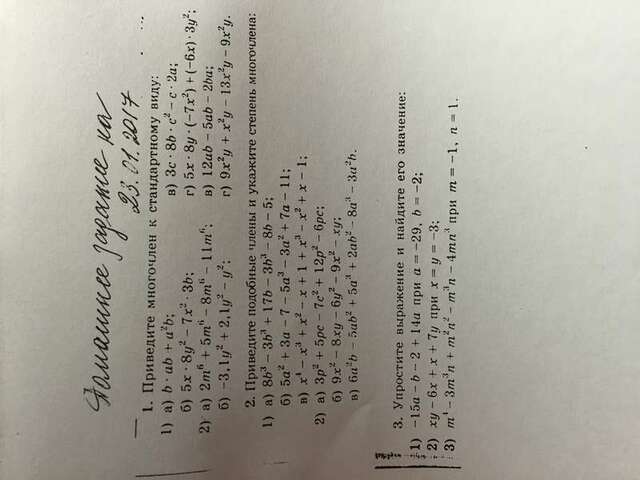 Домашнее задание на
23.01.2017
1. Приведите многочлен к стандартному виду:
1) а) b · ab + a²b; в) 3c · 8b · c² – c · 2a;
б) 5x · 8y² – 7x² · 3b; г) 5x · 8y · (–7x²) + (–6x) · 3y²;
2) а) 2m⁶ + 5m⁶ – 8m⁶ – 11m⁶; в) 12ab – 5ab – 2ba;
б) –3,1y² + 2,1y² – y²; г) 9x²y + x²y – 13x²y – 9x²y.
2. Приведите подобные члены и укажите степень многочлена:
1) а) 8b³ – 3b³ + 17b – 3b³ – 8b – 5;
б) 5a² + 3a – 7 – 5a³ – 3a² + 7a – 11;
в) x⁴ – x³ + x² – x + 1 + x³ – x² + x – 1;
2) а) 3p² + 5pc – 7c² + 12p² – 6pc;
б) 9x² – 8xy – 6y² – 9x² – xy;
в) 6a²b – 5ab² + 5a³ + 2ab² – 8a³ – 3a²b.
3. Упростите выражение и найдите его значение:
1) –15a – b – 2 + 14a при a = –29, b = –2;
2) xy – 6x + x + 7y при x = y = –3;
3) m⁴ – 3m³n + m²n² – m³n – 4mn³ при m = –1, n = 1.